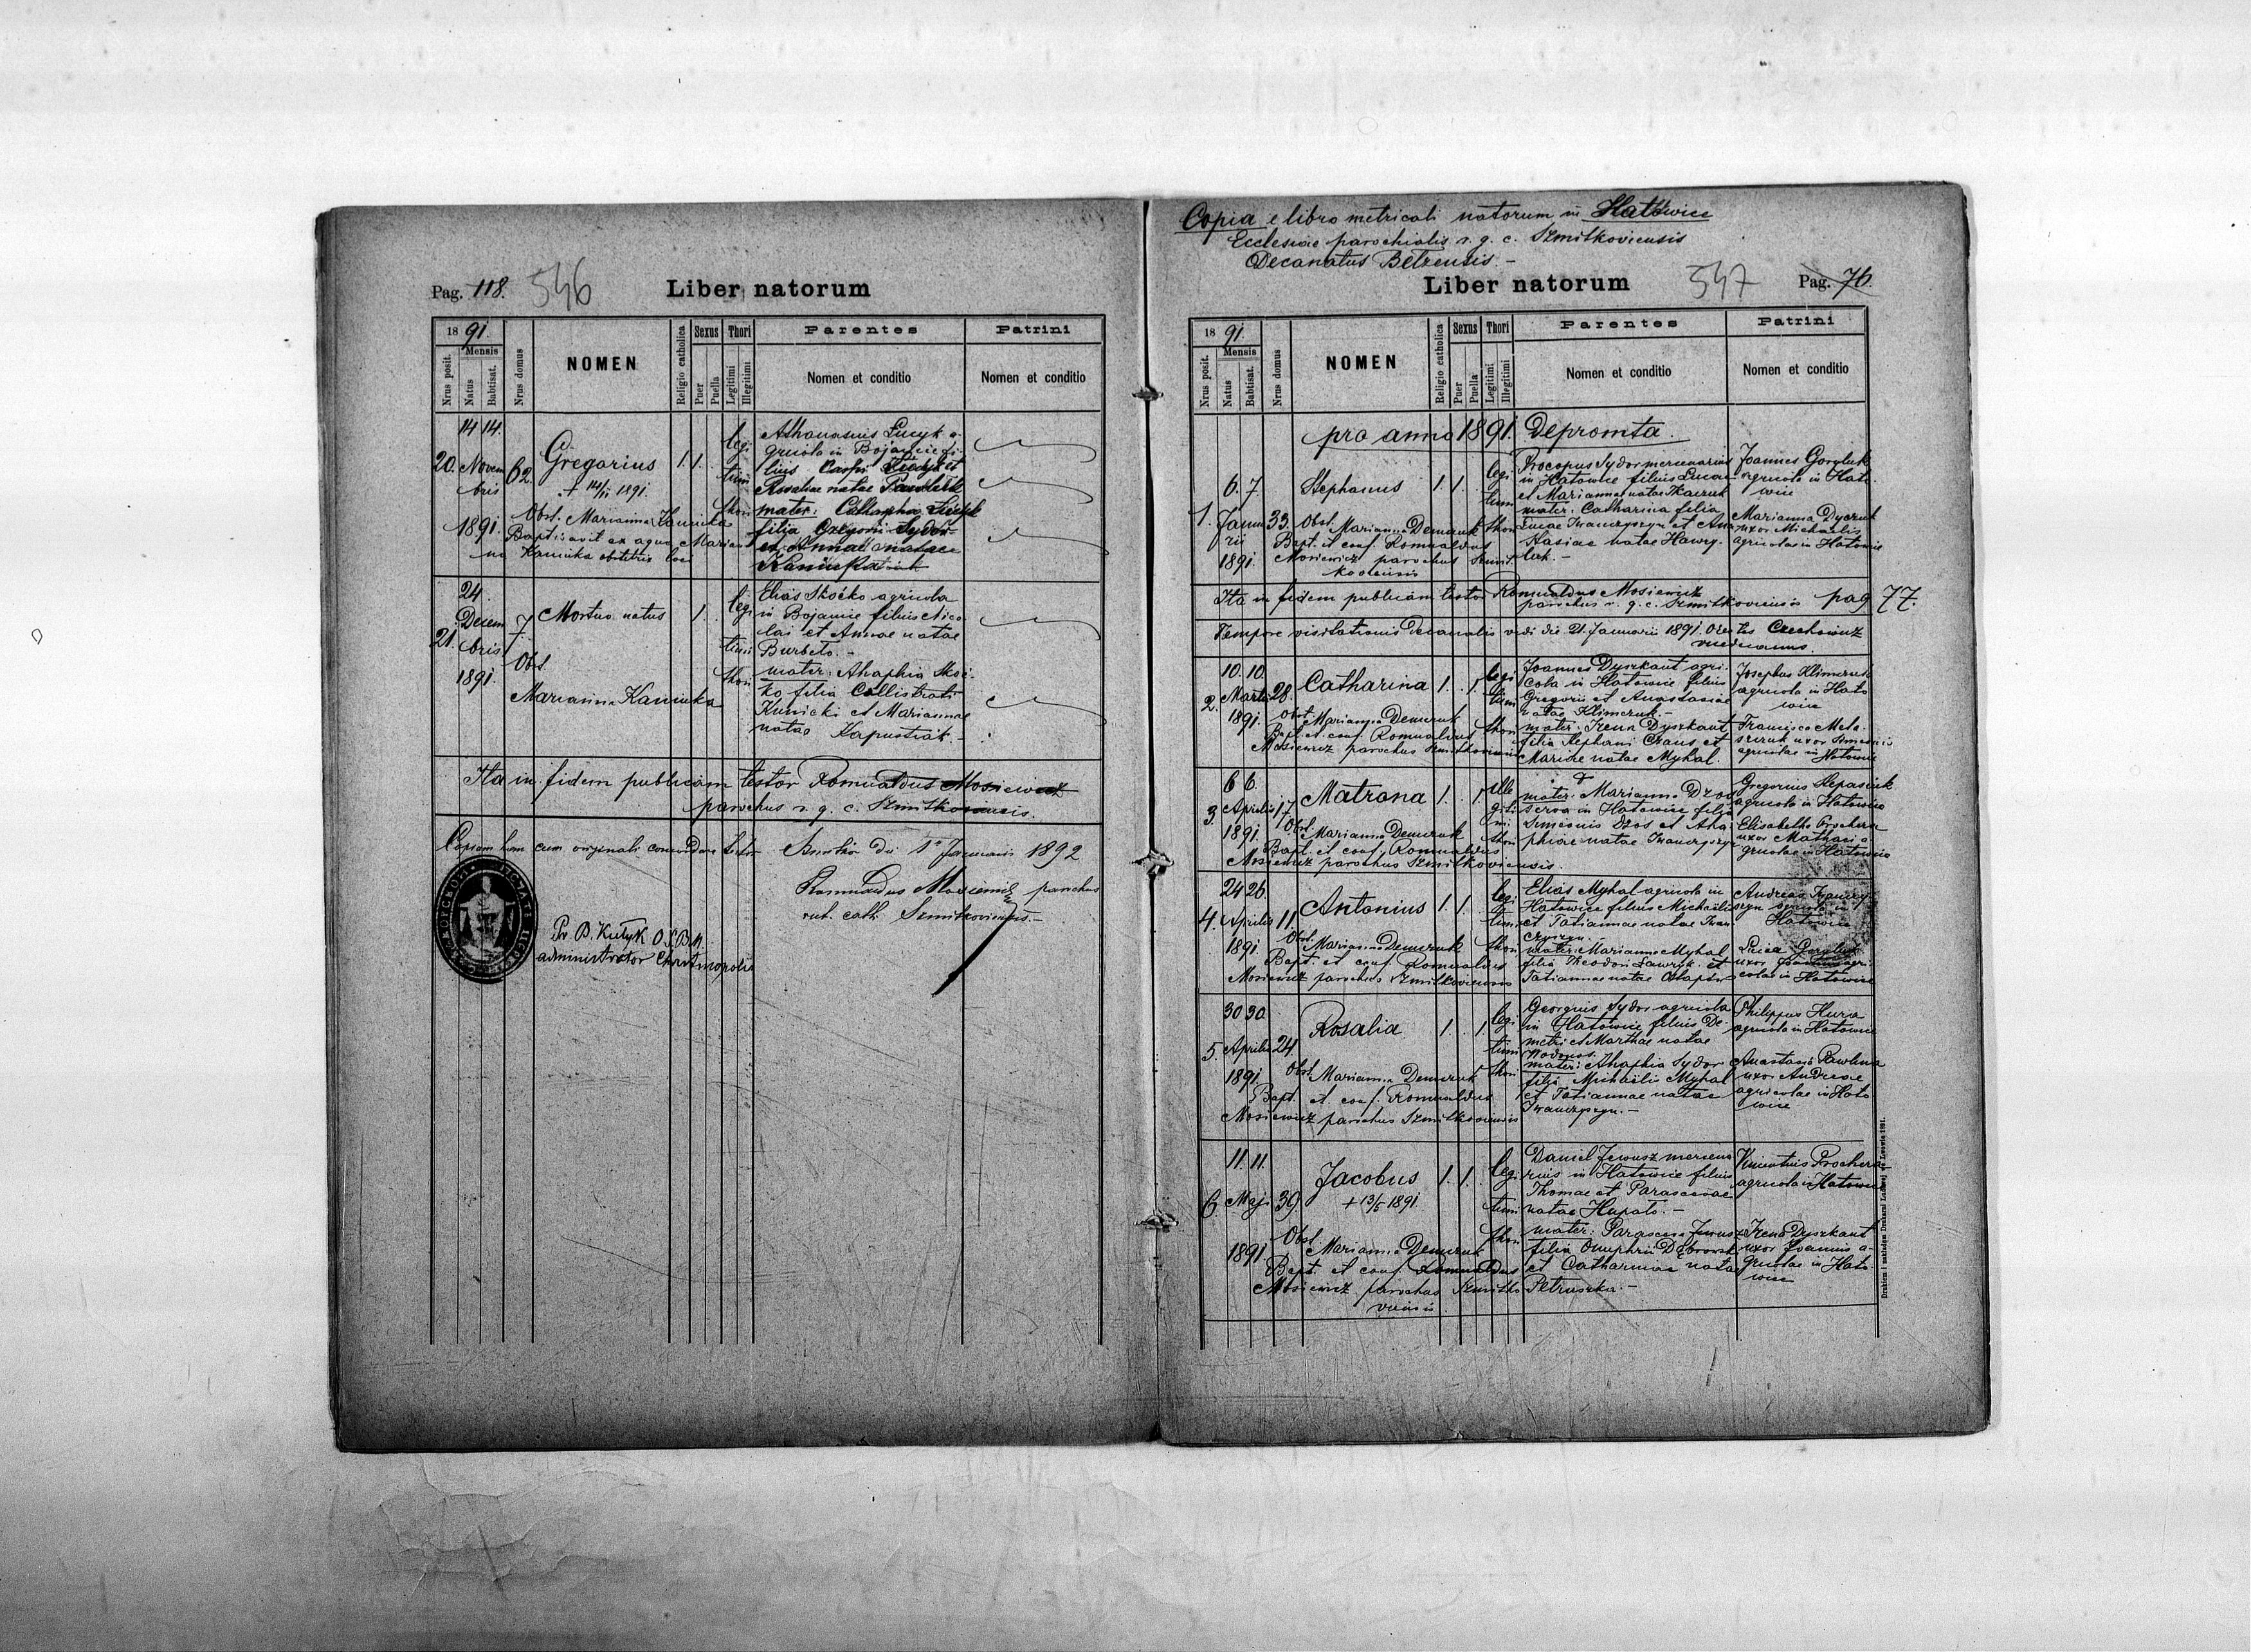 Pag. 118.
546
Liber natorum
1891.
Nrus posit.
Mensis
Natus
Babtisat.
Nrus domus
NOMEN
Religio catholica
Sexus
Puer
Puella
Thori
Legitimi
Illegitimi
Parentes
Nomen et conditio
Patrini
Nomen et conditio
14 14.
20. Novem
bris
1891.
62.
Gregorius 1. 1.
+ 14/11 1891.
Obst. Marianna Kaniuka
Baptisavit ex aqua Marian
na Kaniuka obstetrix loci
legi
timi
thori
Athanasius Łucyk a-
gricola in Bojanice fi-
lius
Rosaliae natae Pawluk
mater: Catharina Łucyk
filia Gregorii Sydor
et Annae natae
Kaniuka
24.
Decem
21. bris
1891.
7.
Mortuo natus 1.
Obst.
Marianna Kaniuka
legi
timi
thori
Elias Skoćko agricola
in Bojanice filius Nico
lai et Annae natae
Burbeto. -
mater: Ahaphia Skoć-
ko filia Callistrati
Kunicki et Mariannae
natae Kapustiak. -
Ita in fidem publicam testor Romualdus Mosiewicz
parochus r. g. c. Szmitkoviensis.
Copiam hanc cum originali concordare testor
die 1ª Januarii 1892
Romualdus Mosiewicz parochus
rit. cath. Szmitkoviensis. -
Pr. B. Kutyk O.S.B.M.
administrator Christinopolis
Copia e libro metricali natorum in Hatowice
Ecclesiae parochialis r. g. c. Szmitkoviensis
Decanatus Belzensis. -
Liber natorum
547
Pag. 76.
1891.
Nrus posit.
Mensis
Natus
Babtisat.
Nrus domus
NOMEN
Religio catholica
Sexus
Puer
Puella
Thori
Legitimi
Illegitimi
Parentes
Nomen et conditio
Patrini
Nomen et conditio
pro anno 1891. Depromta.
6. 7.
1. Janua
rii
1891.
33.
Stephanus 1. 1.
Obst.
Marianna Demczuk
Bapt. et conf. Romualdus
Mosiewicz parochus Szmit
koviensis
legi
timi
thori
Procopius Sydor mercenarius
in Hatowice filius Lucae
et Mariannae natae Tkaczuk
mater: Catharina filia
Lucae Iwanczyszyn et Ana
stasiae natae Hawry-
lak. -
Joannes Gorgluk
agricola in Hato-
wice
Marianna Dyczuk
uxor Michaelis
agricolae in Hatowice
Ita in fidem publicam testor Romualdus Mosiewicz
parochus r. g. c. Szmitkoviensis
pag 77.
Tempore visitationis decanalis vidi die 21. Januarii 1891. Orestes Czechowicz
vicedecanus.
10. 10.
2. Martii
1891.
28.
Catharina 1. 1.
Obst. Marianna Demczuk
Bapt. et conf. Romualdus
Mosiewicz parochus Szmitkoviensis
legi
timi
thori
Joannes Dyszkant agri-
cola in Hatowice filius
Gregorii et Anastasiae
natae Klimczuk. -
mater: Irena Dyszkant
filia Stephani Czaus et
Mariae natae Myhal.
Josephus Klimczuk
agricola in Hato
wice
Francisca Mela-
szczuk uxor Simeonis
agricolae in Hatowice
6 6.
3. Aprilis
1891.
17.
Matrona 1. 1.
Obst. Marianna Demczuk
Bapt. et conf. Romualdus
Mosiewicz parochus Szmitkoviensis.
ille
giti
mi
thori
mater: Marianna Dzos
serva in Hatowice filia
Simeonis Dzos et Aha
phiae natae Iwanczyszyn
Gregorius Stepasiuk
agricola in Hatowice
Elisabetha Prochera
uxor Mathaei a-
gricolae in Hatowice
24 26.
4. Aprilis
1891.
11.
Antonius 1. 1.
Obst. Marianna Demczuk
Bapt. et conf. Romualdus
Mosiewicz parochus Szmitkoviensis
legi
timi
thori
Elias Myhal agricola in
Hatowice filius Michaelis
et Tatiannae natae Iwan
czyszyn. -
mater: Marianna Myhal
filia Theodori Ławryk et
Tatiannae natae Ostapów
Andreas Iwanczy-
szyn agricola in
Hatowice
uxor agri-
colae in Hatowice
30 30.
5. Aprilis
1891.
24.
Rosalia 1. 1.
Obst. Marianna Demczuk
Bapt. et conf. Romualdus
Mosiewicz parochus Szmitkoviensis
legi
timi
thori
Georgius Sydor agricola
in Hatowice filius De-
metri et Marthae natae
Wodonos.
mater: Ahaphia Sydor
filia Michaelis Myhal
et Tatiannae natae
Iwanczyszyn. -
Philippus Hura
agricola in Hatowice
Anastasia Pawlina
uxor Andreae
agricolae in Hato
wice
11. 11.
6. Maji
1891
39
Jacobus 1. 1.
+ 13/5 1891.
Obst. Marianna Demczuk
Bapt. et conf. Romualdus
Mosiewicz parochus Szmitko
viensis
legi
timi
thori
Daniel Jewusz mercena
rius in Hatowice filius
Thomae et Parascevae
natae Hupalo. -
mater: Parasceva Jewusz
filia Onuphrii Dąbrowsk
et Catharinae natae
Petruszka. -
Vincentius Prochera
agricola in Hatowice
Irena Dyszkant
uxor Joannis a-
gricolae in Hato-
wice
Drukiem i nakładem Drukarni Ludowej we Lwowie 1891.